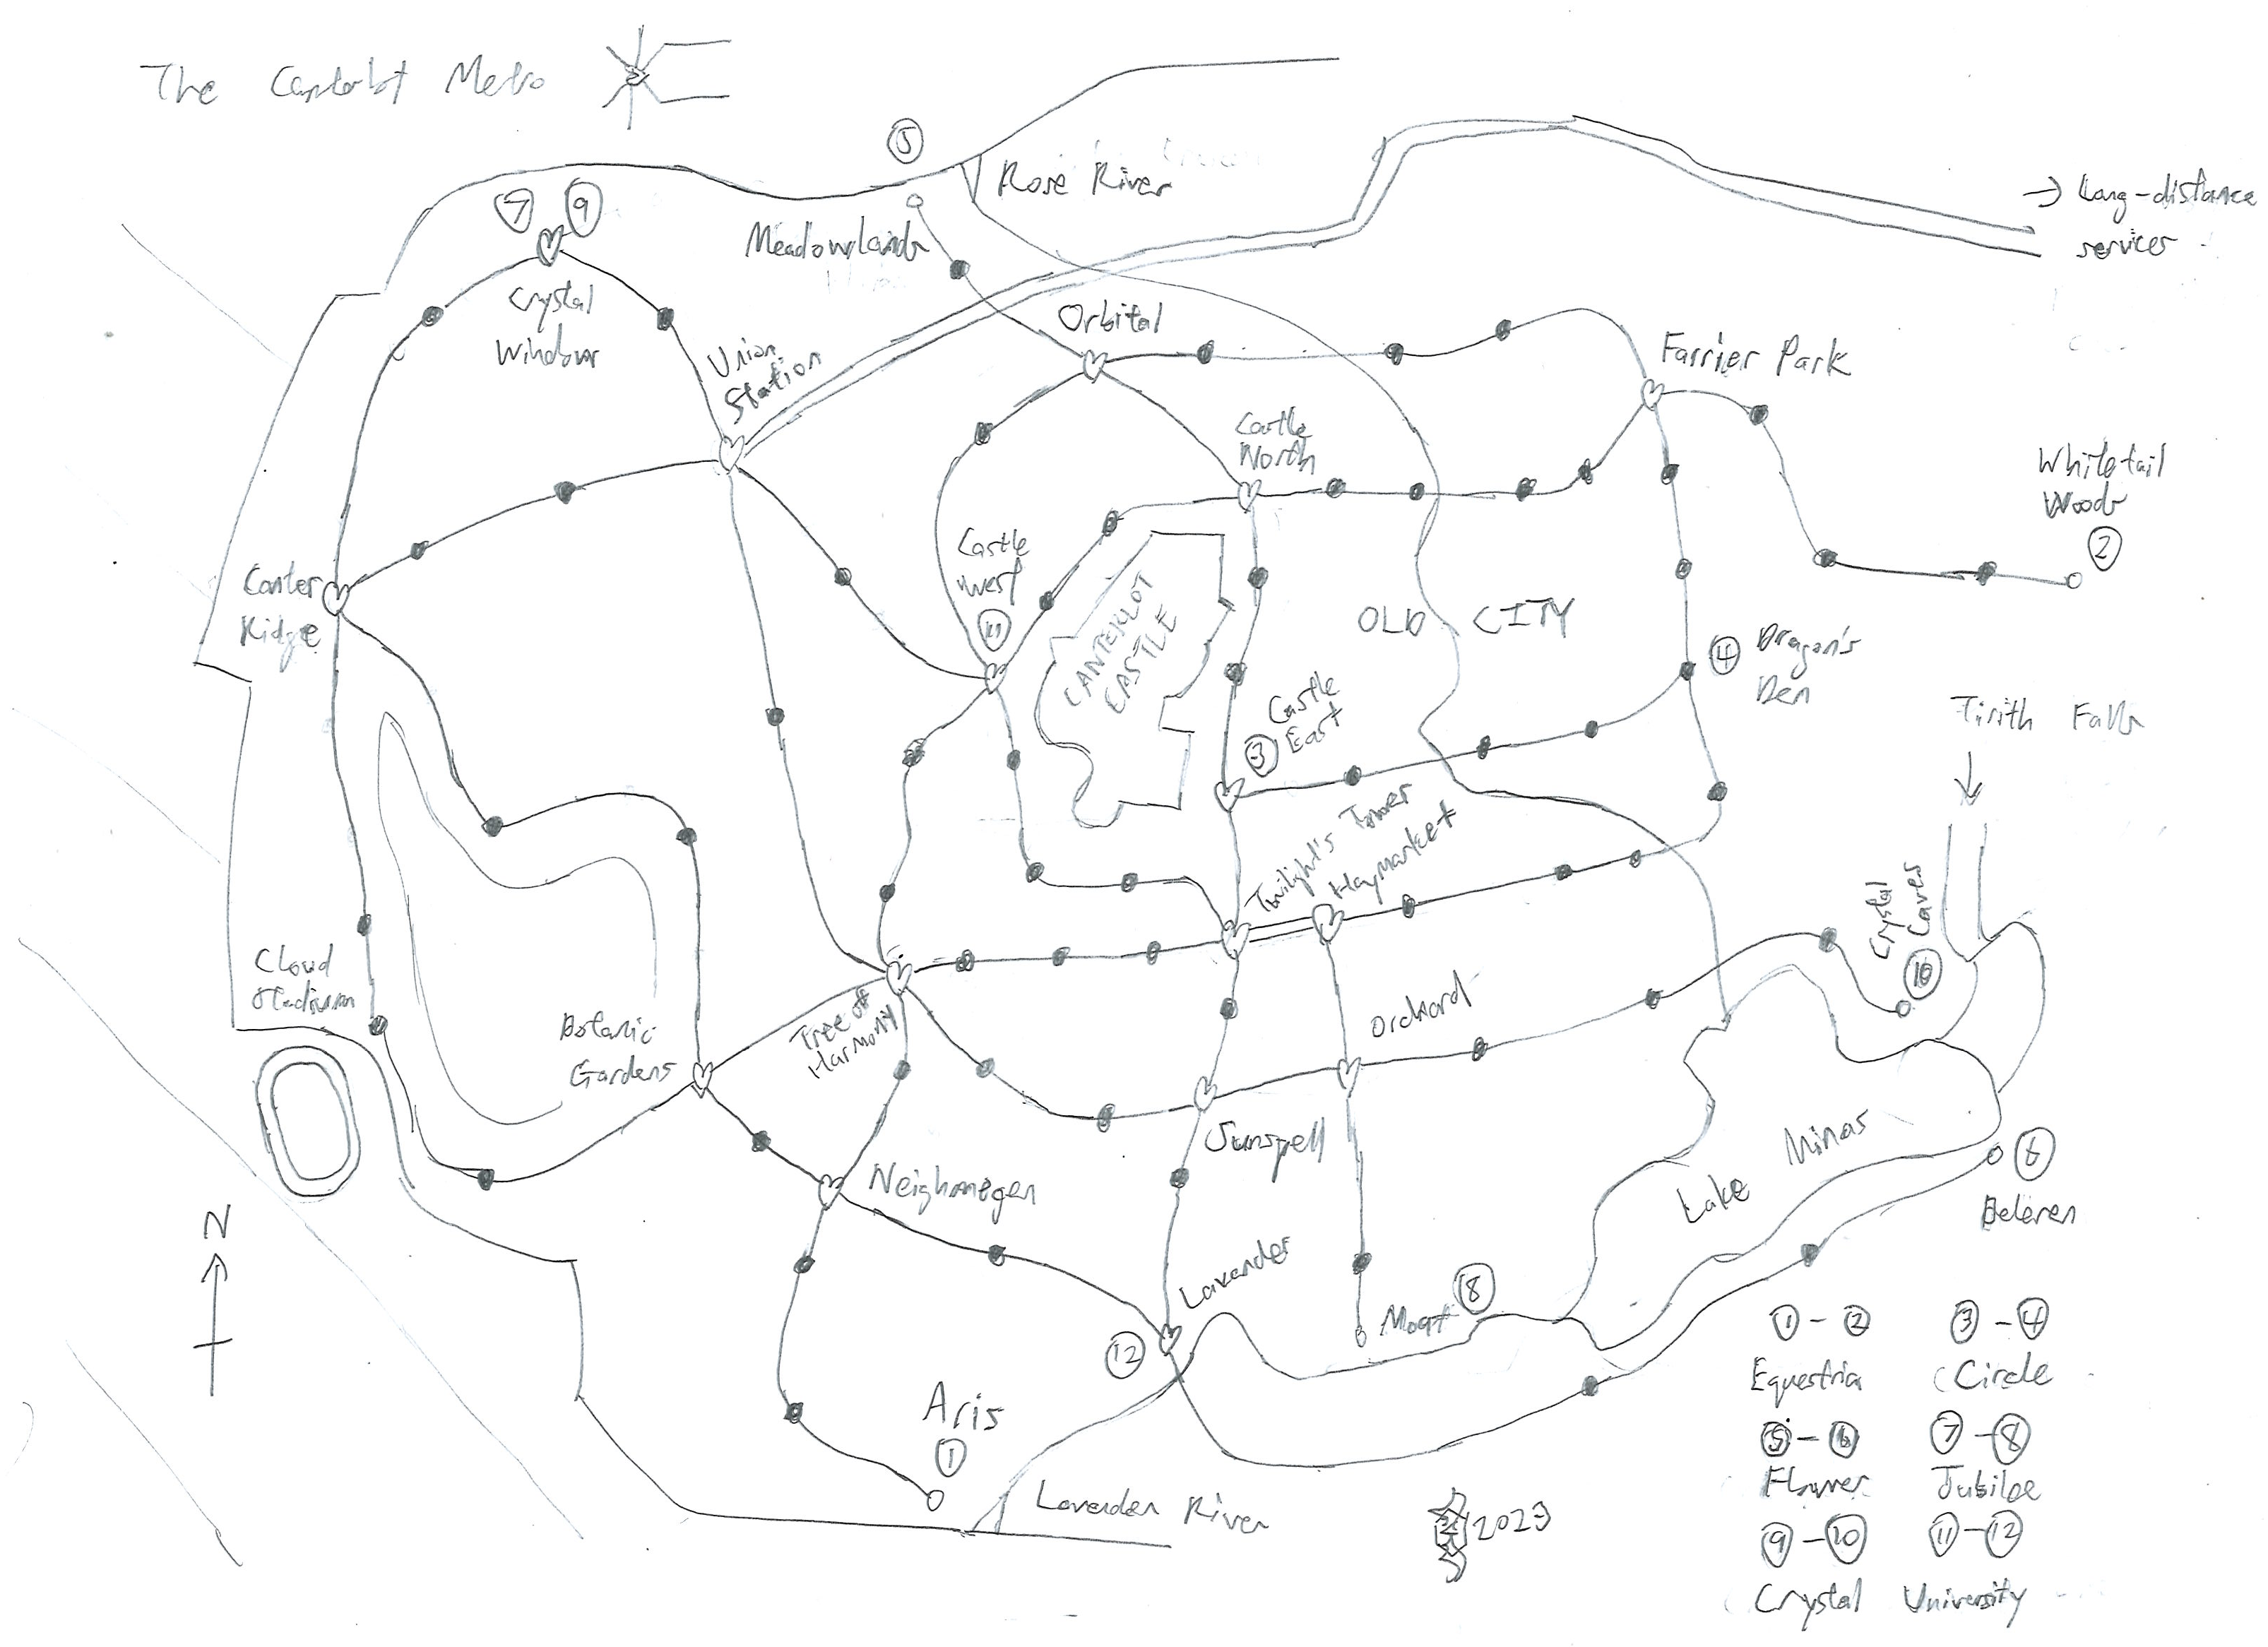 The Canterlot Metro
5
Rose River
→ Long-distance
services
7 9
Meadowlands
Crystal
Window
Orbital
Union
Station
Farrier Park
Castle
North
Whitetail
Woods
2
Castle
West
11
Canter
Ridge
CANTERLOT
CASTLE
OLD CITY
4 Dragon's
Den
Castle
East
3
Tirith Falls
Twilight's Tower
Haymarket
Crystal
Caves
10
Cloud
Stadium
Botanic
Gardens
Tree of
Harmony
Orchard
Sunspell
Lake Minas
6
Beleren
Neighmegen
N
Lavender
12
Moat 8
Aris
1
Lavender River
2023
1 - 2
Equestria
3 - 4
Circle
5 - 6
Flower
7 - 8
Jubilee
9 - 10
Crystal
11 - 12
University